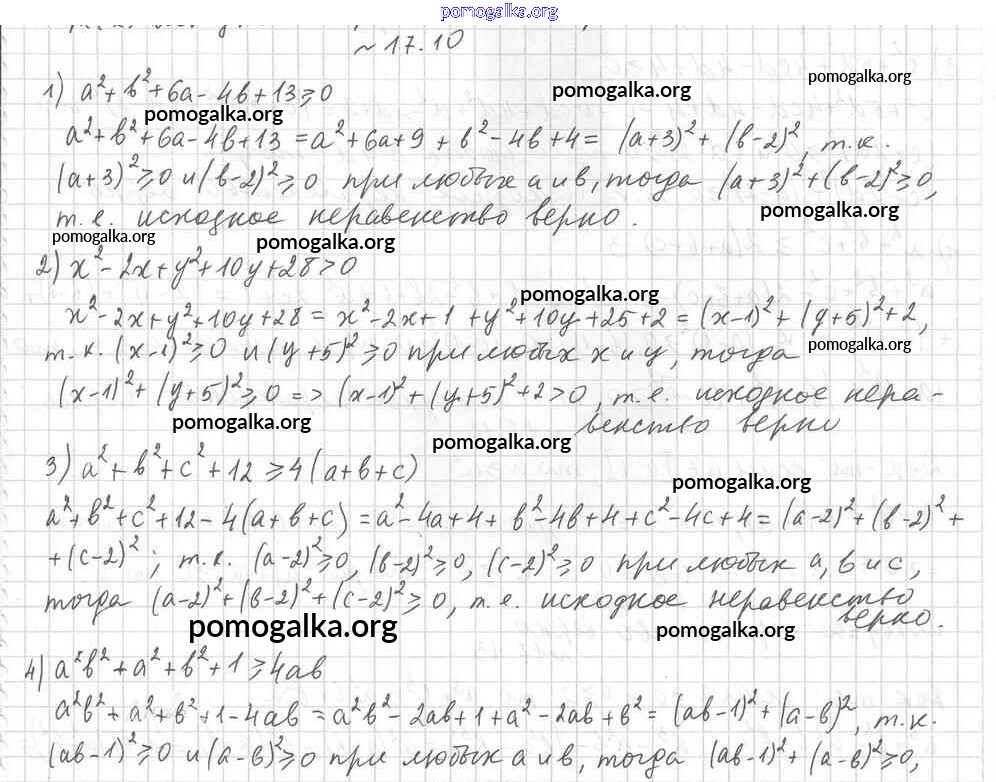 pomogalka.org
~ 17.10
1) a²+b²+6a-4b+13≥0
pomogalka.org
pomogalka.org
pomogalka.org
a²+b²+6a-4b+13 = a²+6a+9 + b²-4b+4 = (a+3)² + (b-2)², т.к.
(a+3)²≥0 и (b-2)²≥0 при любых a и b, тогда (a+3)²+(b-2)²≥0,
т.е. исходное неравенство верно.
pomogalka.org
pomogalka.org
pomogalka.org
2) x²-2x+y²+10y+28>0
pomogalka.org
x²-2x+y²+10y+28 = x²-2x+1 + y²+10y+25+2 = (x-1)² + (y+5)²+2,
т.к. (x-1)²≥0 и (y+5)²≥0 при любых x и y, тогда
pomogalka.org
(x-1)²+(y+5)²≥0 => (x-1)²+(y+5)²+2>0, т.е. исходное нера-
венство верно
pomogalka.org
pomogalka.org
3) a²+b²+c²+12≥4(a+b+c)
pomogalka.org
a²+b²+c²+12-4(a+b+c) = a²-4a+4+ b²-4b+4+c²-4c+4 = (a-2)²+(b-2)²+
+(c-2)²; т.к. (a-2)²≥0, (b-2)²≥0, (c-2)²≥0 при любых a, b и c,
тогда (a-2)²+(b-2)²+(c-2)²≥0, т.е. исходное неравенство
верно.
pomogalka.org
pomogalka.org
4) a²b²+a²+b²+1≥4ab
a²b²+a²+b²+1-4ab = a²b²-2ab+1+a²-2ab+b² = (ab-1)²+(a-b)², т.к.
(ab-1)²≥0 и (a-b)²≥0 при любых a и b, тогда (ab-1)²+(a-b)²≥0,